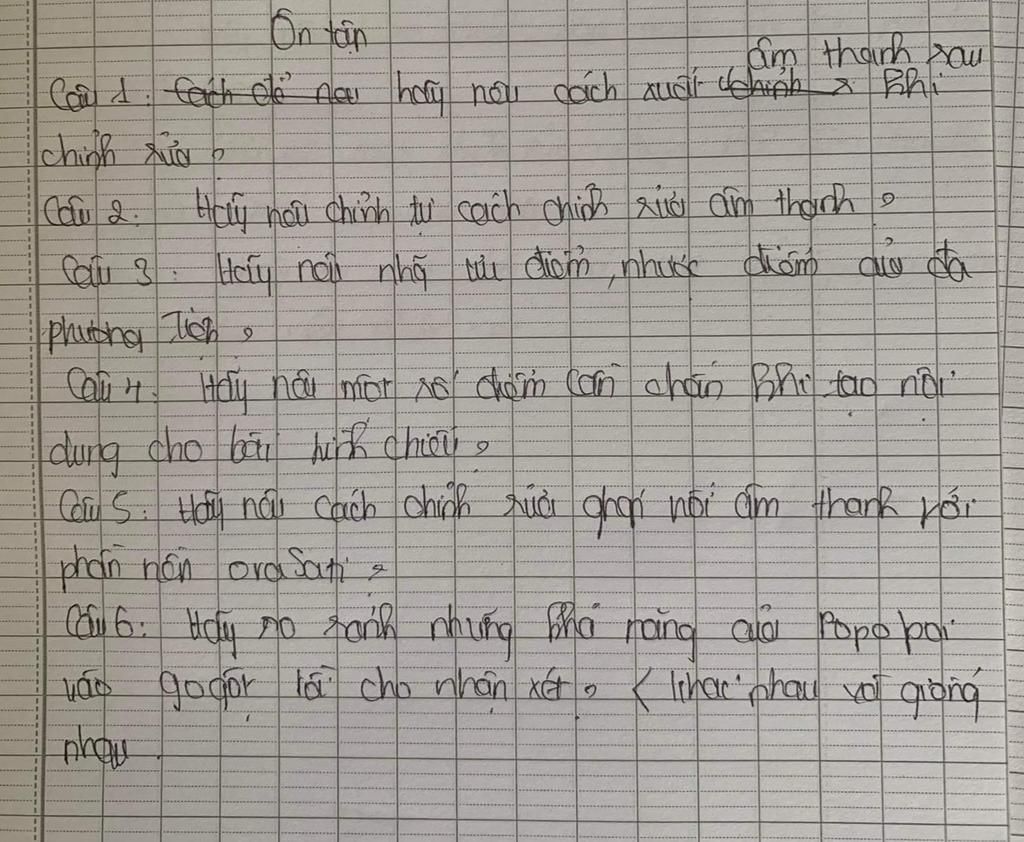 Ôn tập
âm thanh sau
Câu 1: Cách để nêu hãy nêu cách xuất chỉnh khi
chỉnh sửa?
Câu 2. Hãy nêu chỉnh tự cách chỉnh sửa âm thanh?
Câu 3: Hãy nêu nhã ưu điểm, nhược điểm của đa
phương Tiện?
Câu 4. Hãy nêu một số điểm cần chán khi tạo nội
dung cho bài hình chiếu?
Câu 5: Hãy nêu cách chỉnh sửa ghơi nối âm thanh với
phần nền
Câu 6: Hãy so sánh những khả năng của
cho nhận xét? (khác nhau với giống
nhau